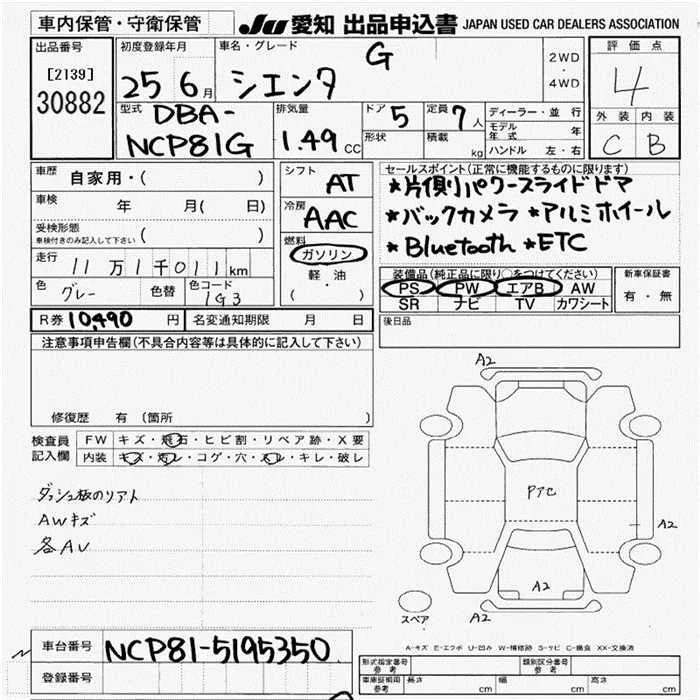 車内保管・守衛保管
JU 愛知 出品申込書 JAPAN USED CAR DEALERS ASSOCIATION
出品番号
[2139]
30882
初度登録年月
25 6月
車名・グレード
シエンタ G
2WD
・
4WD
評価点
4
外装 内装
C B
型式
DBA-
NCP81G
排気量
1.49 CC
ドア 5
定員 7人
形状
積載 kg
ディーラー・並行
モデル年式 年
ハンドル 左・右
車歴 自家用・( )
車検 年 月( 日)
受検形態
車検付きのみ記入して下さい ( )
走行 11万1千011km
色 グレー 色替 色コード 1G3
シフト AT
冷房 AAC
燃料
ガソリン
軽油
( ・ )
セールスポイント(正常に機能するものに限ります)
*片側パワースライドドア
*バックカメラ *アルミホイール
*Bluetooth *ETC
装備品(純正品に限り○をつけてください)
PS PW エアB AW
SR ナビ TV カワシート
新車保証書
有・無
R券 10,490 円 名変通知期限 月 日
後日品
注意事項申告欄(不具合内容等は具体的に記入して下さい)
修復歴 有 (箇所 )
検査員
記入欄
FW キズ・飛石・ヒビ割・リペア跡・X要
内装 キズ・汚レ・コゲ・穴・スレ・キレ・破レ
AWキズ
各AU
A2
A2
A2
A2
スペア
A-キズ E-エクボ U-凹み W-補修跡 S-サビ C-腐食 XX-交換済
車台番号 NCP81-5195350
登録番号
形式指定番号
参考
類別区分番号
参考
車庫証明用
参考
長さ cm 幅 cm 高さ cm